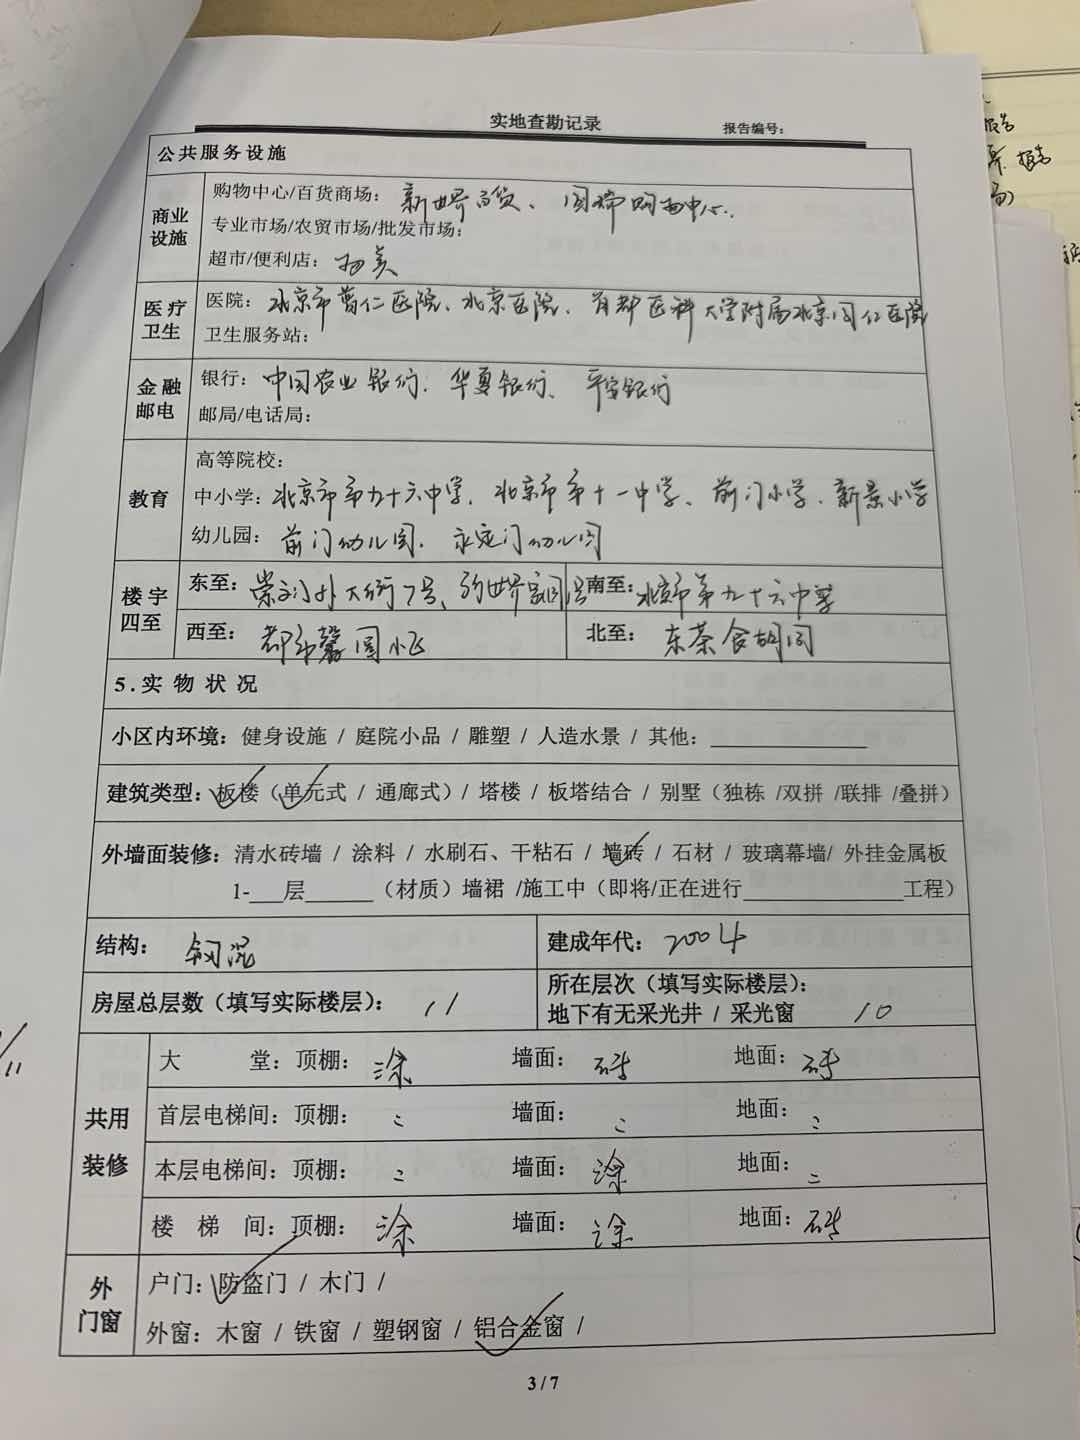 实地查勘记录 报告编号：
公共服务设施
商业设施
购物中心/百货商场：新世界百货、国瑞购物中心.
专业市场/农贸市场/批发市场：
超市/便利店：物美
医疗卫生
医院：北京市普仁医院、北京医院、首都医科大学附属北京同仁医院
卫生服务站：
金融邮电
银行：中国农业银行、华夏银行、平安银行
邮局/电话局：
教育
高等院校：
中小学：北京市第九十六中学、北京市第十一中学、前门小学、新景小学
幼儿园：前门幼儿园、永定门幼儿园
楼宇四至
东至：崇文门外大街7号、新世界家园 南至：北京市第九十六中学
西至：都市馨园小区 北至：东茶食胡同
5.实物状况
小区内环境：健身设施 / 庭院小品 / 雕塑 / 人造水景 / 其他：
建筑类型：板楼（单元式 / 通廊式）/ 塔楼 / 板塔结合 / 别墅（独栋 /双拼 /联排 /叠拼）
外墙面装修：清水砖墙 / 涂料 / 水刷石、干粘石 / 墙砖 / 石材 / 玻璃幕墙/ 外挂金属板
1-___层______（材质）墙裙 /施工中（即将/正在进行______________工程）
结构：钢混 建成年代：2004
房屋总层数（填写实际楼层）：11 所在层次（填写实际楼层）：
地下有无采光井 / 采光窗 10
共用装修
大 堂：顶棚：涂 墙面：砖 地面：砖
首层电梯间：顶棚：〃 墙面：〃 地面：〃
本层电梯间：顶棚：〃 墙面：涂 地面：〃
楼 梯 间：顶棚：涂 墙面：涂 地面：砖
外门窗
户门：防盗门 / 木门 /
外窗：木窗 / 铁窗 / 塑钢窗 / 铝合金窗 /
3 / 7
报告
报告